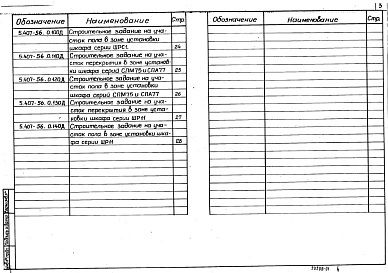 3
Обозначение Наименование Стр.
Обозначение Наименование Стр.
5.407-56. 0.110Д Строительное задание на уча-
сток пола в зоне установки
шкафа серии ШРС1 24
5.407-56. 0.120Д Строительное задание на уча-
сток перекрытия в зоне установ
ки шкафа серии СПМ75 и СПА77 25
5.407-56. 0.130Д Строительное задание на уча-
сток пола в зоне установки
шкафа серии СПМ75 и СПА77 26
5.407-56. 0.140Д Строительное задание на уча-
сток перекрытия в зоне уста-
новки шкафа серии ШР11 27
5.407-56. 0.150Д Строительное задание на уча-
сток пола в зоне установки шка-
фа серии ШР11 28
4